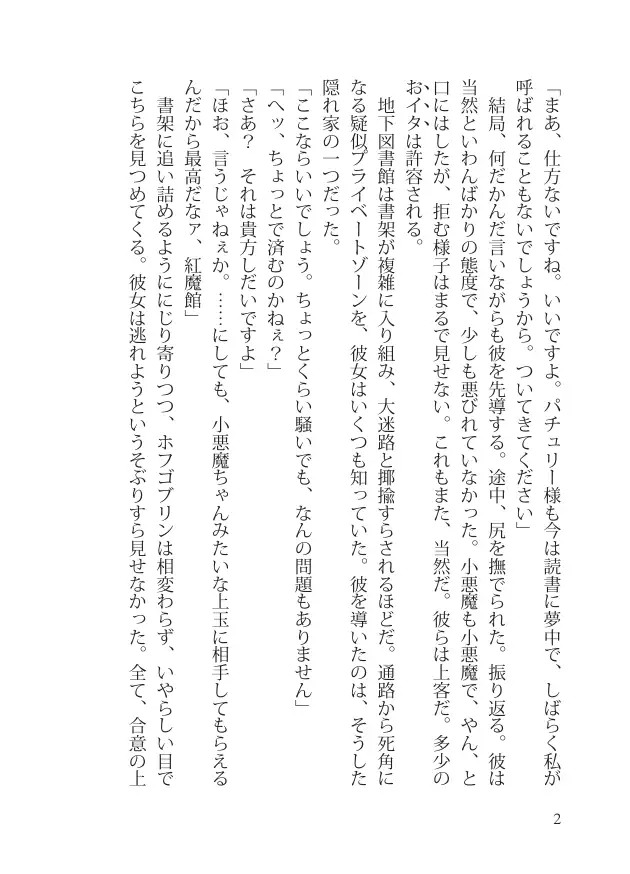 「まあ、仕方ないですね。いいですよ。パチュリー様も今は読書に夢中で、しばらく私が
呼ばれることもないでしょうから。ついてきてください」
　結局、何だかんだ言いながらも彼を先導する。途中、尻を撫でられた。振り返る。彼は
当然といわんばかりの態度で、少しも悪びれていなかった。小悪魔も小悪魔で、やん、と
口にはしたが、拒む様子はまるで見せない。これもまた、当然だ。彼らは上客だ。多少の
おイタは許容される。
　地下図書館は書架が複雑に入り組み、大迷路と揶揄すらされるほどだ。通路から死角に
なる疑似プライベートゾーンを、彼女はいくつも知っていた。彼を導いたのは、そうした
隠れ家の一つだった。
「ここならいいでしょう。ちょっとくらい騒いでも、なんの問題もありません」
「ヘッ、ちょっとで済むのかねぇ？」
「さあ？　それは貴方しだいですよ」
「ほお、言うじゃねぇか。……にしても、小悪魔ちゃんみたいな上玉に相手してもらえる
んだから最高だなァ、紅魔館」
　書架に追い詰めるようににじり寄りつつ、ホフゴブリンは相変わらず、いやらしい目で
こちらを見つめてくる。彼女は逃れようというそぶりすら見せなかった。全て、合意の上
2